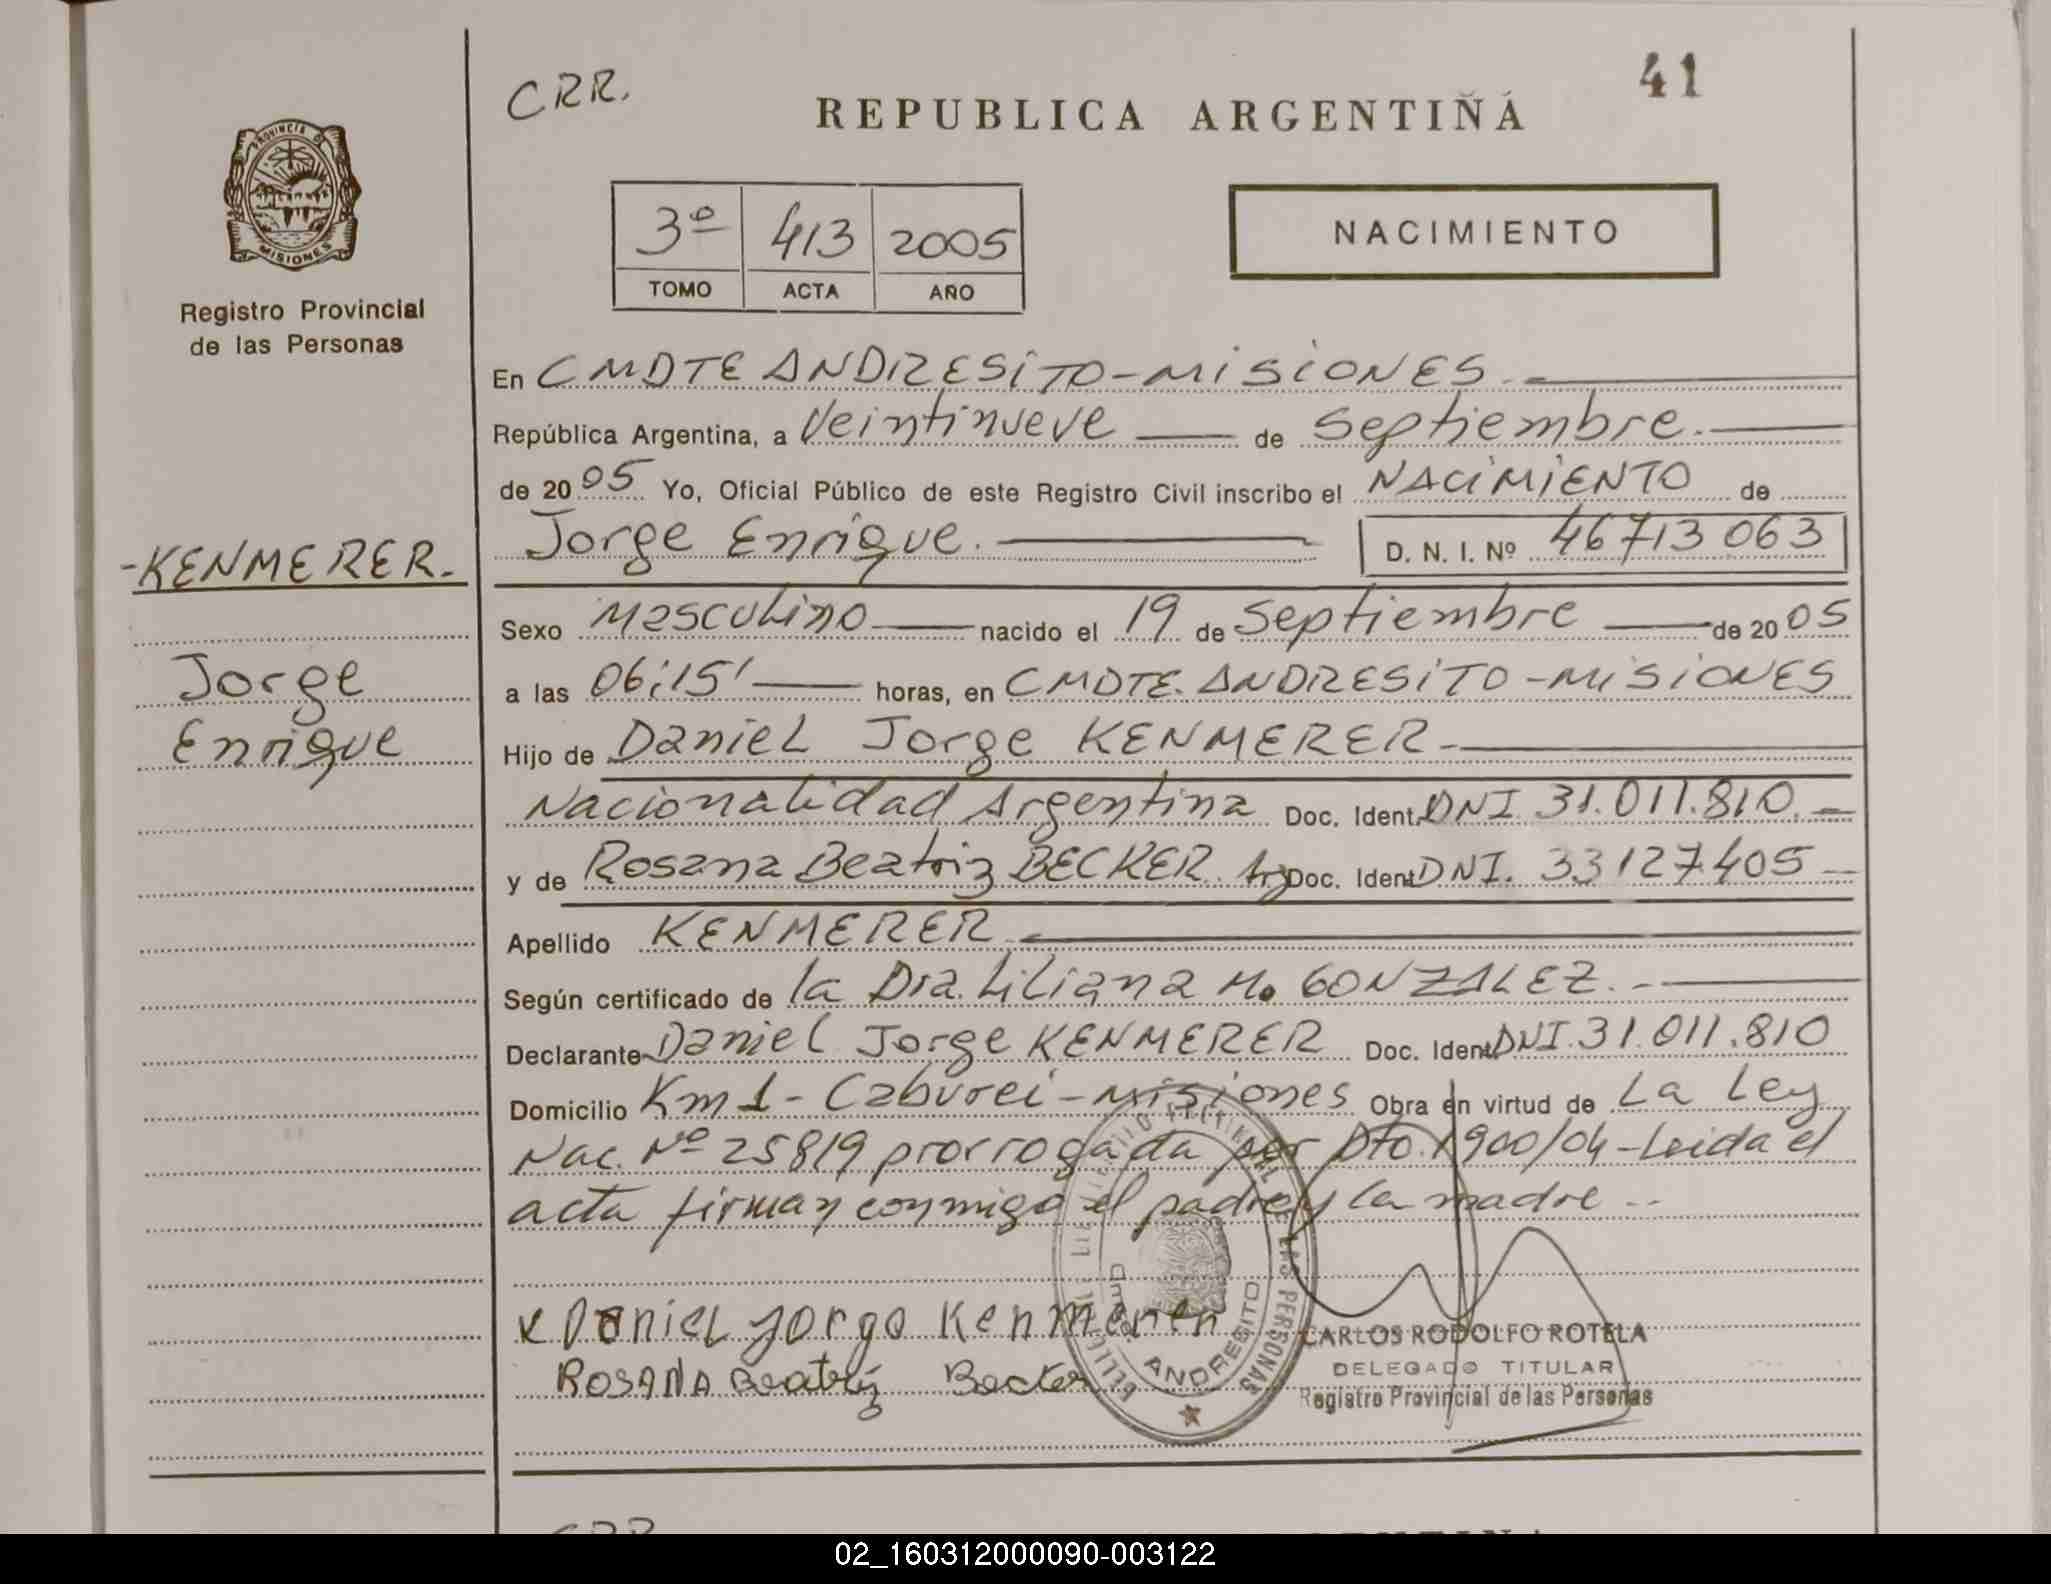 41
CRR.
REPUBLICA ARGENTINA
PROVINCIA D
MISIONES
Registro Provincial
de las Personas
3º 413 2005
TOMO ACTA AÑO
NACIMIENTO
En CMDTE ANDRESITO-MISIONES.-
República Argentina, a Veintinueve de Septiembre.
de 2005 Yo, Oficial Público de este Registro Civil inscribo el NACIMIENTO de
Jorge Enrique. D. N. I. Nº 46713063
-KENMERER.
Jorge
Enrique
Sexo Masculino nacido el 19 de Septiembre de 2005
a las 06:15' horas, en CMDTE. ANDRESITO-MISIONES
Hijo de Daniel Jorge KENMERER-
Nacionalidad Argentina Doc. Ident. DNI. 31.011.810.-
y de Rosana Beatriz BECKER. Arg Doc. Ident. DNI. 33127405-
Apellido KENMERER.-
Según certificado de la Dra. Liliana M. GONZALEZ.-
Declarante Daniel Jorge KENMERER Doc. Ident. DNI. 31.011.810
Domicilio Km 1- Caburei-Misiones Obra en virtud de La Ley
Nac. Nº 25819 prorrogada por Dto. 1900/04-Leida el
acta firman conmigo el padre y la madre --
x Daniel Jorge Kenmerer
ROSANA Beatriz Becker
DE LAS PERSONAS
ANDRESITO
CARLOS RODOLFO ROTELA
DELEGADO TITULAR
Registro Provincial de las Personas
02_160312000090-003122